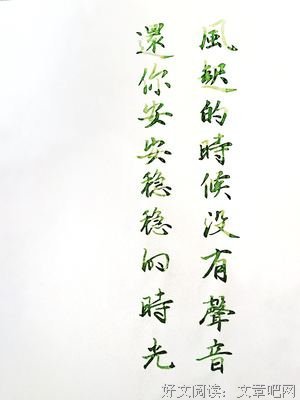 風起的時候没有聲音
還你安安稳稳的時光
好文阅读：文章吧网